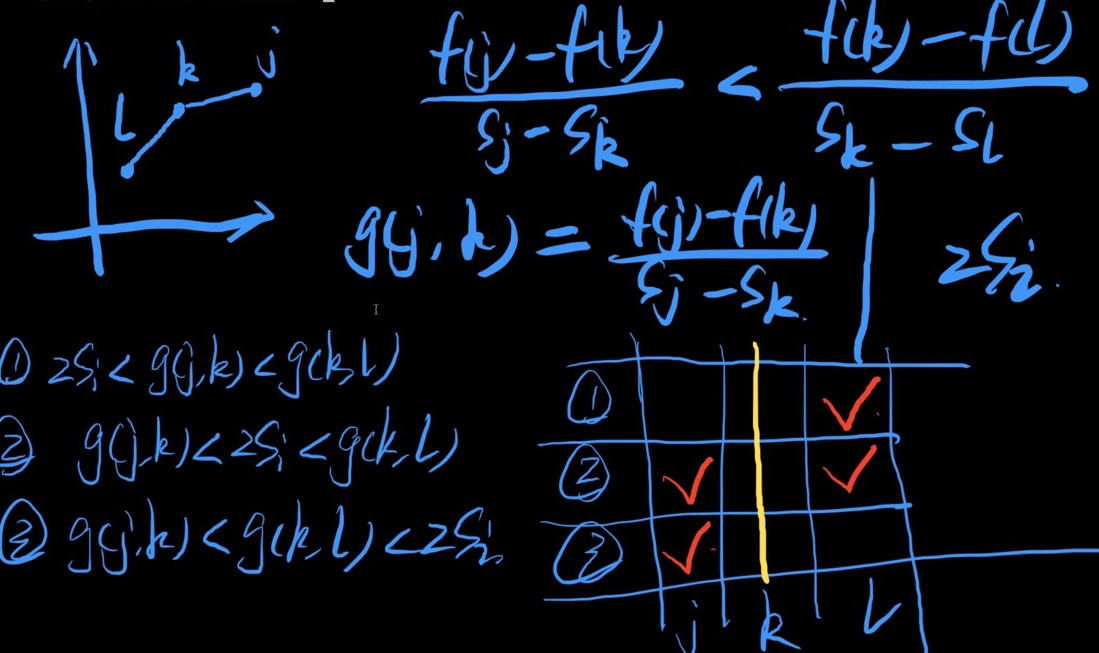 L k j
f(j) - f(k) / Sj - Sk < f(k) - f(l) / Sk - Sl
g(j, k) = f(j) - f(k) / Sj - Sk.
2Si.
① 2Si < g(j,k) < g(k,l)
② g(j,k) < 2Si < g(k,L)
③ g(j,k) < g(k,l) < 2Si.
① ✓
② ✓ ✓
③ ✓
j k L